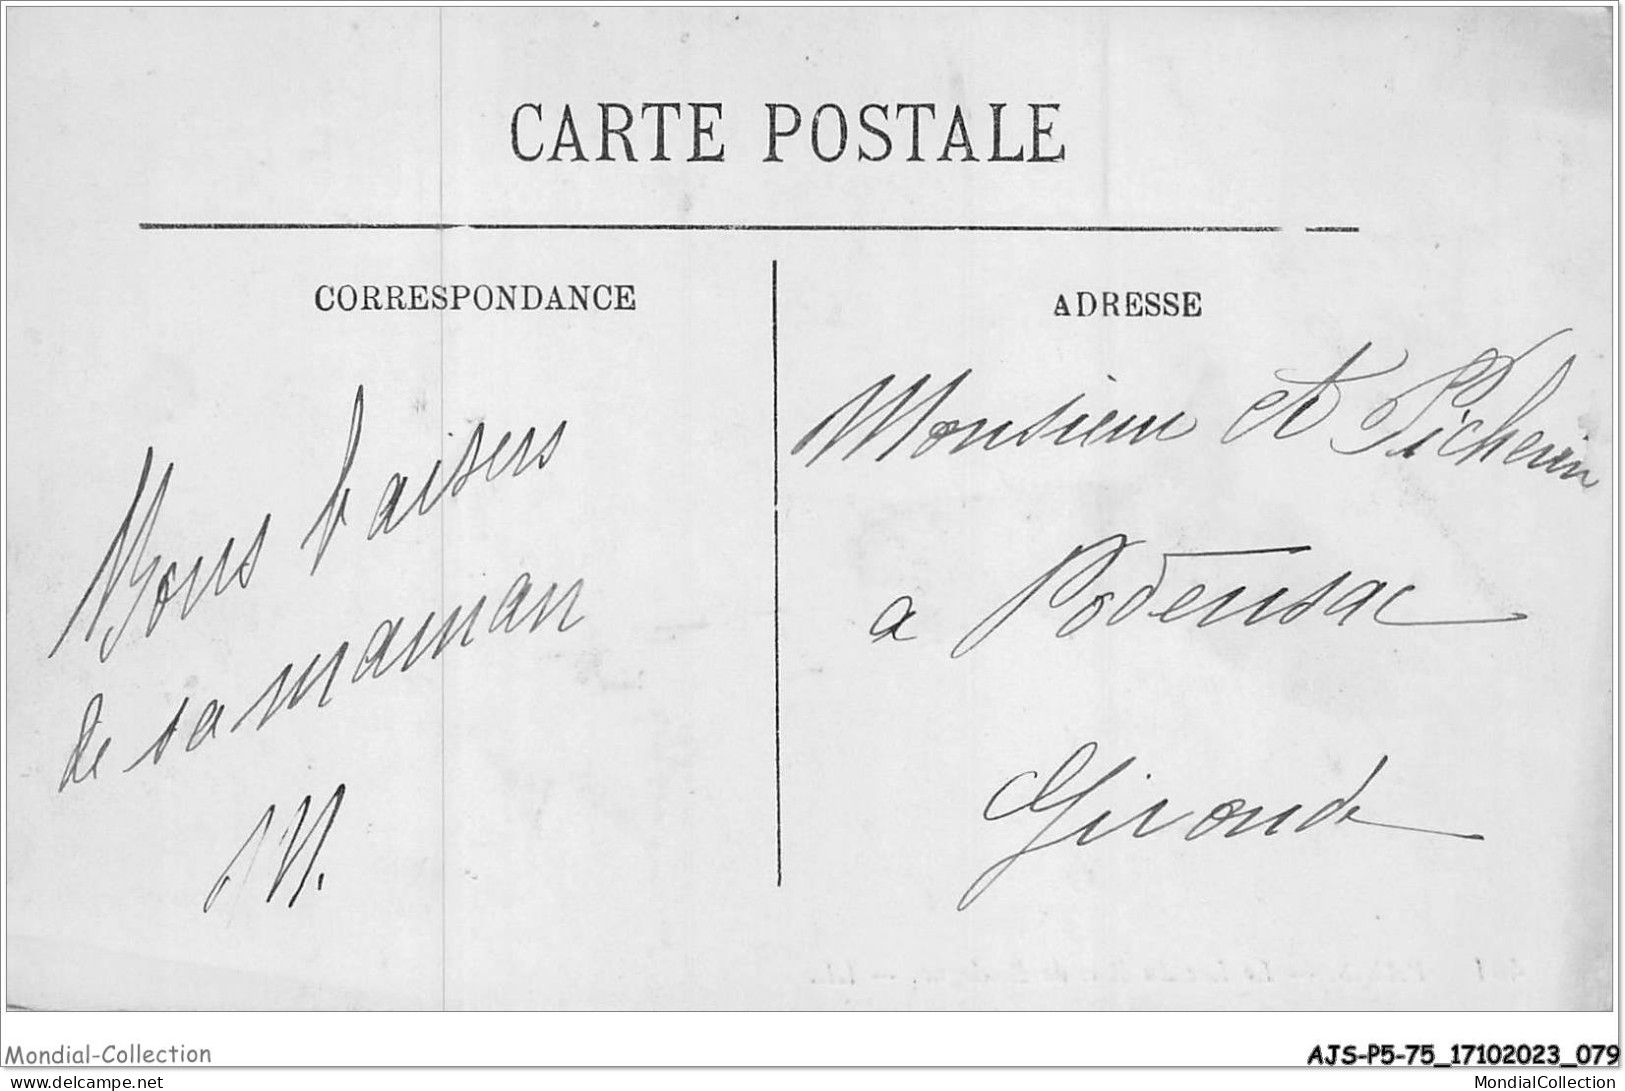 CARTE POSTALE
CORRESPONDANCE
Bons baisers
de sa maman
M.
ADRESSE
Monsieur et Pichevin
a Podensac
Gironde
Mondial-Collection
AJS-P5-75_17102023_079
www.delcampe.net
MondialCollection